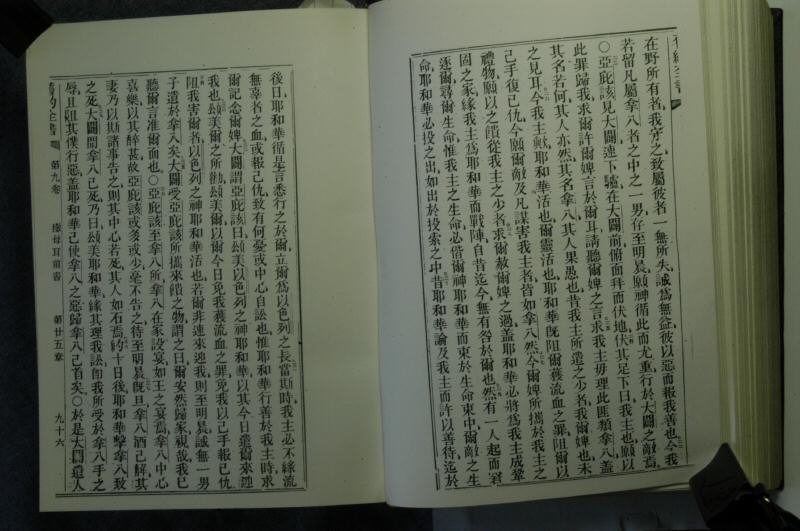 在野所有者、我守之、致屬彼者一無所失、誠爲無益、彼以惡而報我善也、今我
若留凡屬拿八者之中之一男、仔至明晨、願神循此而尤重行於大闢之敵焉、
○亞庇該見大闢、速下驢、在大闢前俯面拜而伏地、伏其足下曰、我主也、願以
此罪歸我、求爾許爾婢言於爾耳、請聽爾婢之言、求我主毋理此匪類拿八、蓋
其名若何、其人亦然、其名拿八、其人果愚也、昔我主所遣之少者、我爾婢也、未
之見耳、今我主歟、耶和華活也、爾靈活也、耶和華旣阻爾獲流血之罪、阻爾以
己手復己仇、今願爾敵及凡謀害我主者、皆如拿八然、今爾婢所攜於我主之
禮物、願以之饋從我主之少者、求爾赦爾婢之過、蓋耶和華必將爲我主成鞏
固之家、緣我主爲耶和華而戰陣、自昔迄今、無有咎於爾也、然有一人起而窘
逐爾、尋爾生命、惟我主之生命、必偕爾神耶和華而束於生命束中、爾敵之生
命、耶和華必投之出、如出於投索之中、昔耶和華諭及我主而許以善待、迄於
後日、耶和華循是言悉行之於爾、立爾爲以色列之長、當斯時我主必不緣流
無辜者之血、或報己仇、致有何憂、或中心自訟也、惟耶和華行善於我主時、求
爾記念爾婢、大闢謂亞庇該曰、頌美以色列之神耶和華、以其今日遣爾來迎
我也、頌美爾之所勸、頌美爾、以爾今日免我獲流血之罪、免我以己手報己仇、
阻我害爾者、以色列之神耶和華活也、若爾非速來迎我、則至明晨、誠無一男
子遺於拿八矣、大闢受亞庇該所攜來饋之物、謂之曰、爾安然歸家、視哉、我已
聽爾言、准爾面也、○亞庇該至拿八所、拿八在家設宴、如王之宴焉、拿八中心
喜樂、以其醉甚、故亞庇該或多或少、毫不告之、待至明晨、旣旦、拿八酒已解、其
妻乃以斯諸事告之、則其中心若死、其人如石焉、約十日後、耶和華擊拿八致
之死、大闢聞拿八已死、乃曰、頌美耶和華、緣其理我訟、卽我所受於拿八手之
辱、且阻其僕行惡、蓋耶和華已使拿八之惡、歸拿八己首矣、○於是大闢遣人
舊約全書 第九卷 撒母耳前書 第廿五章 九十六